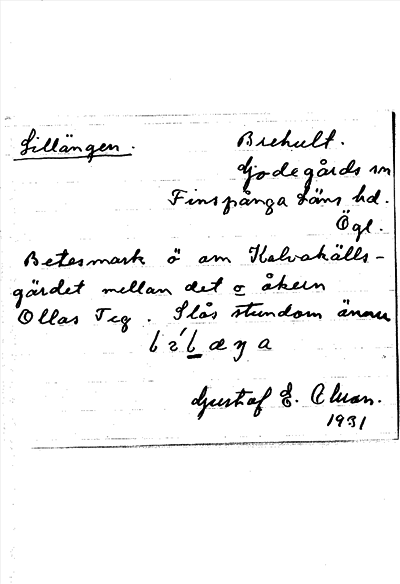 Lillängen.
Brehult.
Godegårds sn
Finspånga Läns hd.
Ögl.
Betesmark ö om Kalvakälls-
gärdet mellan det o åkern
Ollas Teg. Slås stundom ännu
Gustaf E.
1931